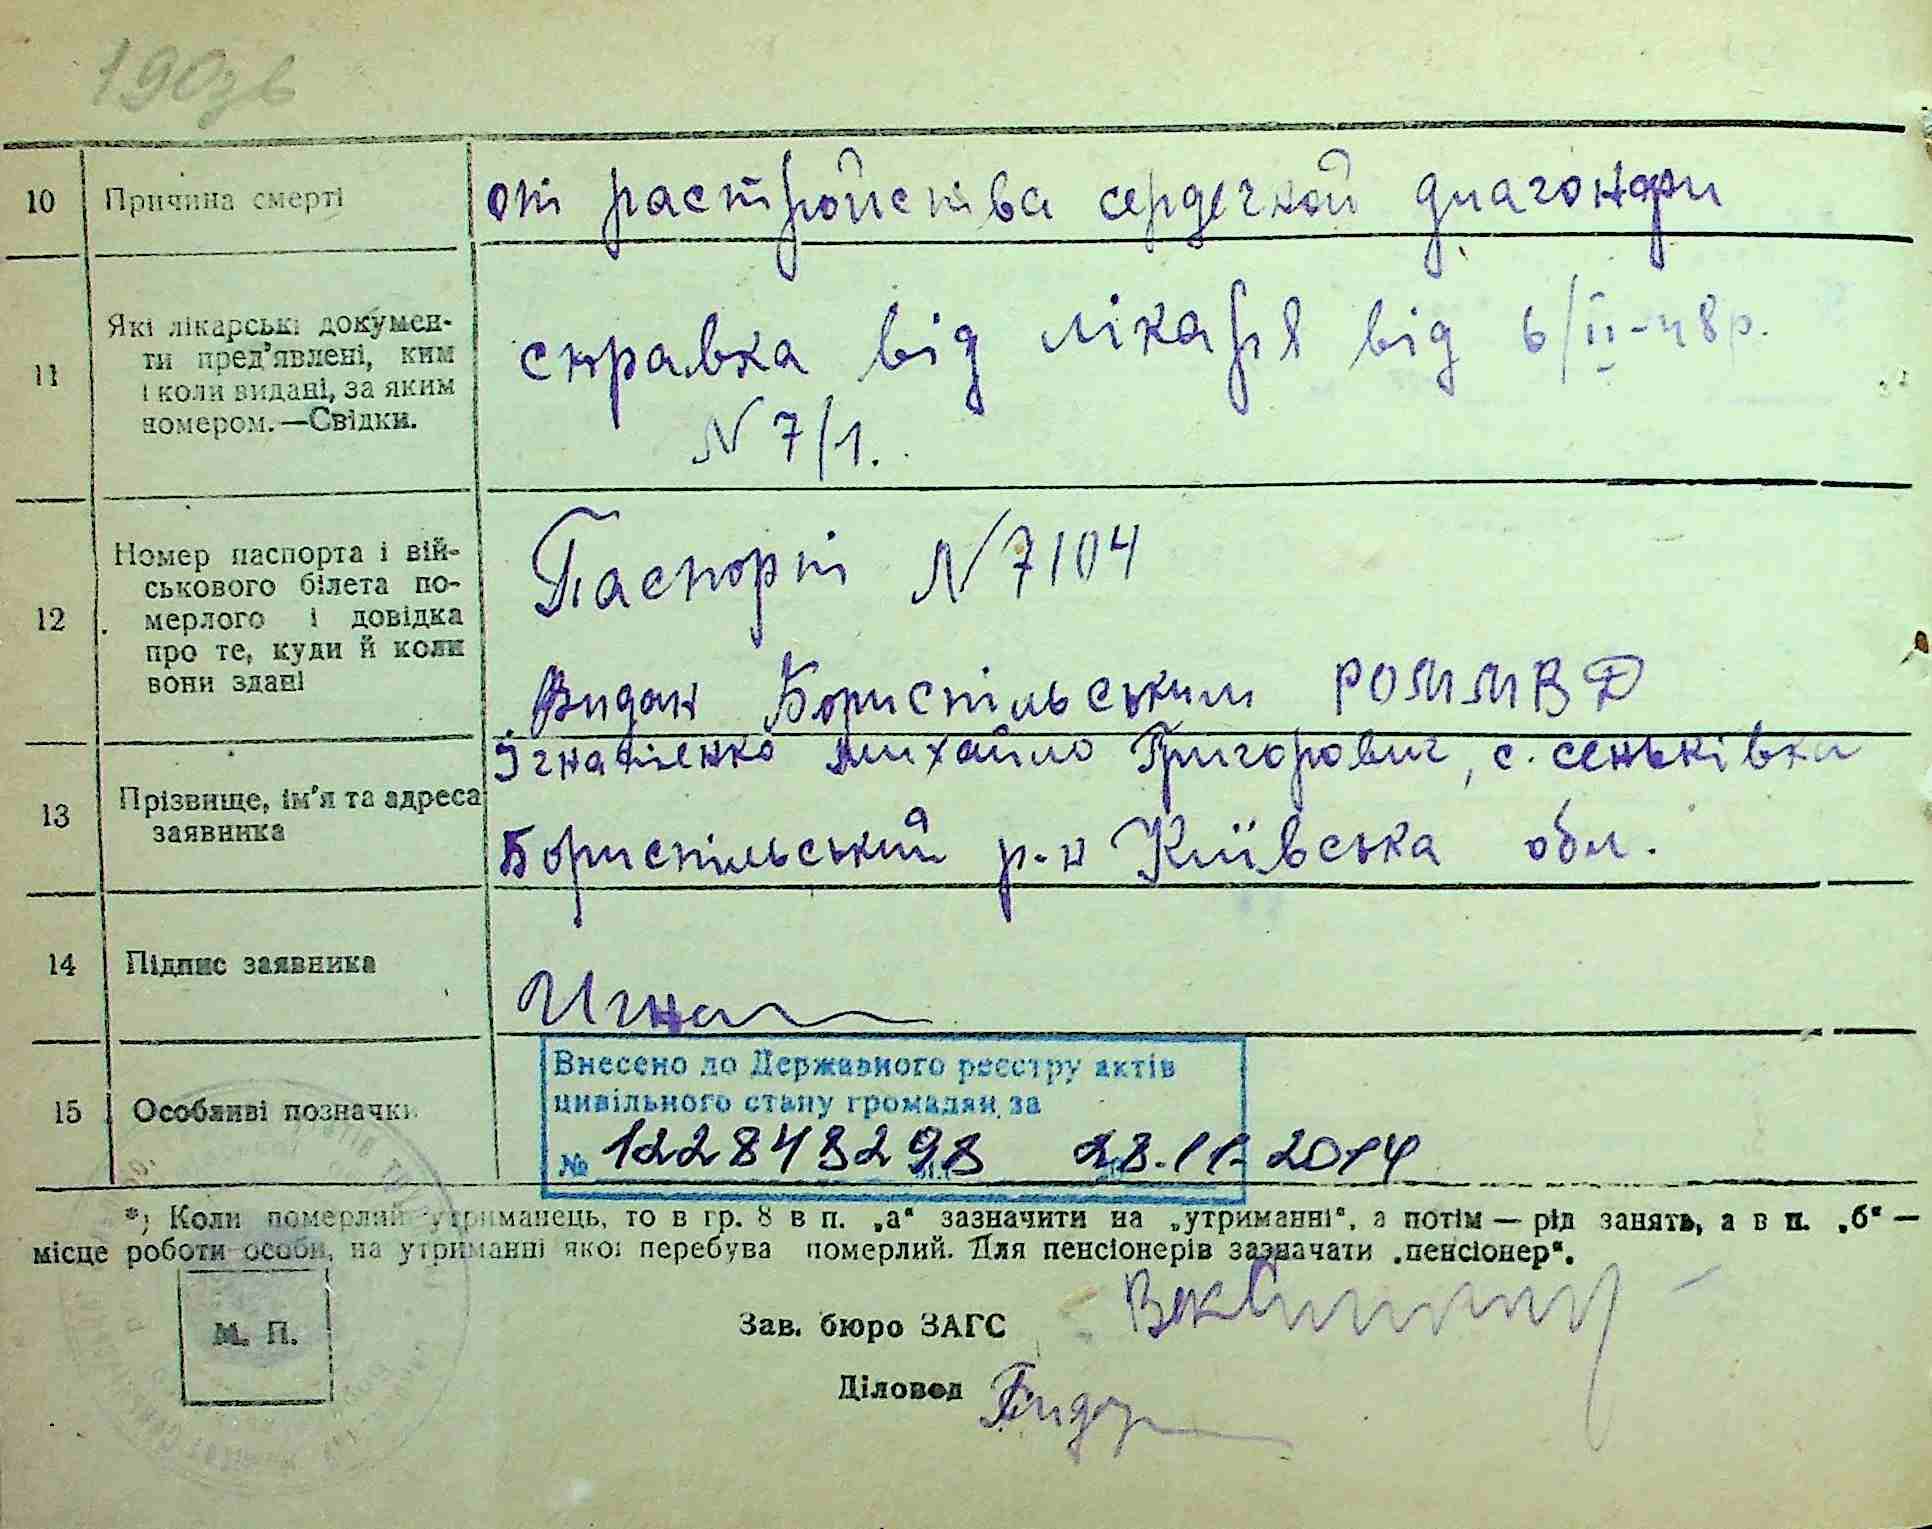 190зв
10 Причина смерті
от растройства сердечной диагонфи
11 Які лікарські докумен-
ти пред'явлені, ким
і коли видані, за яким
номером.—Свідки.
справка від лікаря від 6/II-48р.
N 7/1.
12 Номер паспорта і вій-
ськового білета по-
мерлого і довідка
про те, куди й коли
вони здані
Паспорт N 7104
Видан Бориспільським РОММВД
13 Прізвище, ім'я та адреса
заявника
Ігнатенко Михайло Григорович, с. сеньківка
Бориспільський р-н Київська обл.
14 Підпис заявника
Игна
15 Особливі позначки
Внесено до Державного реєстру актів
цивільного стану громадян за
№ 122848298 28.11.2014
*) Коли померлий утриманець, то в гр. 8 в п. „а“ зазначити на „утриманні“, а потім — рід занять, а в п. „б“ —
місце роботи особи, на утриманні якої перебува померлий. Для пенсіонерів зазначати „пенсіонер“.
М. П.
Зав. бюро ЗАГС
Діловод